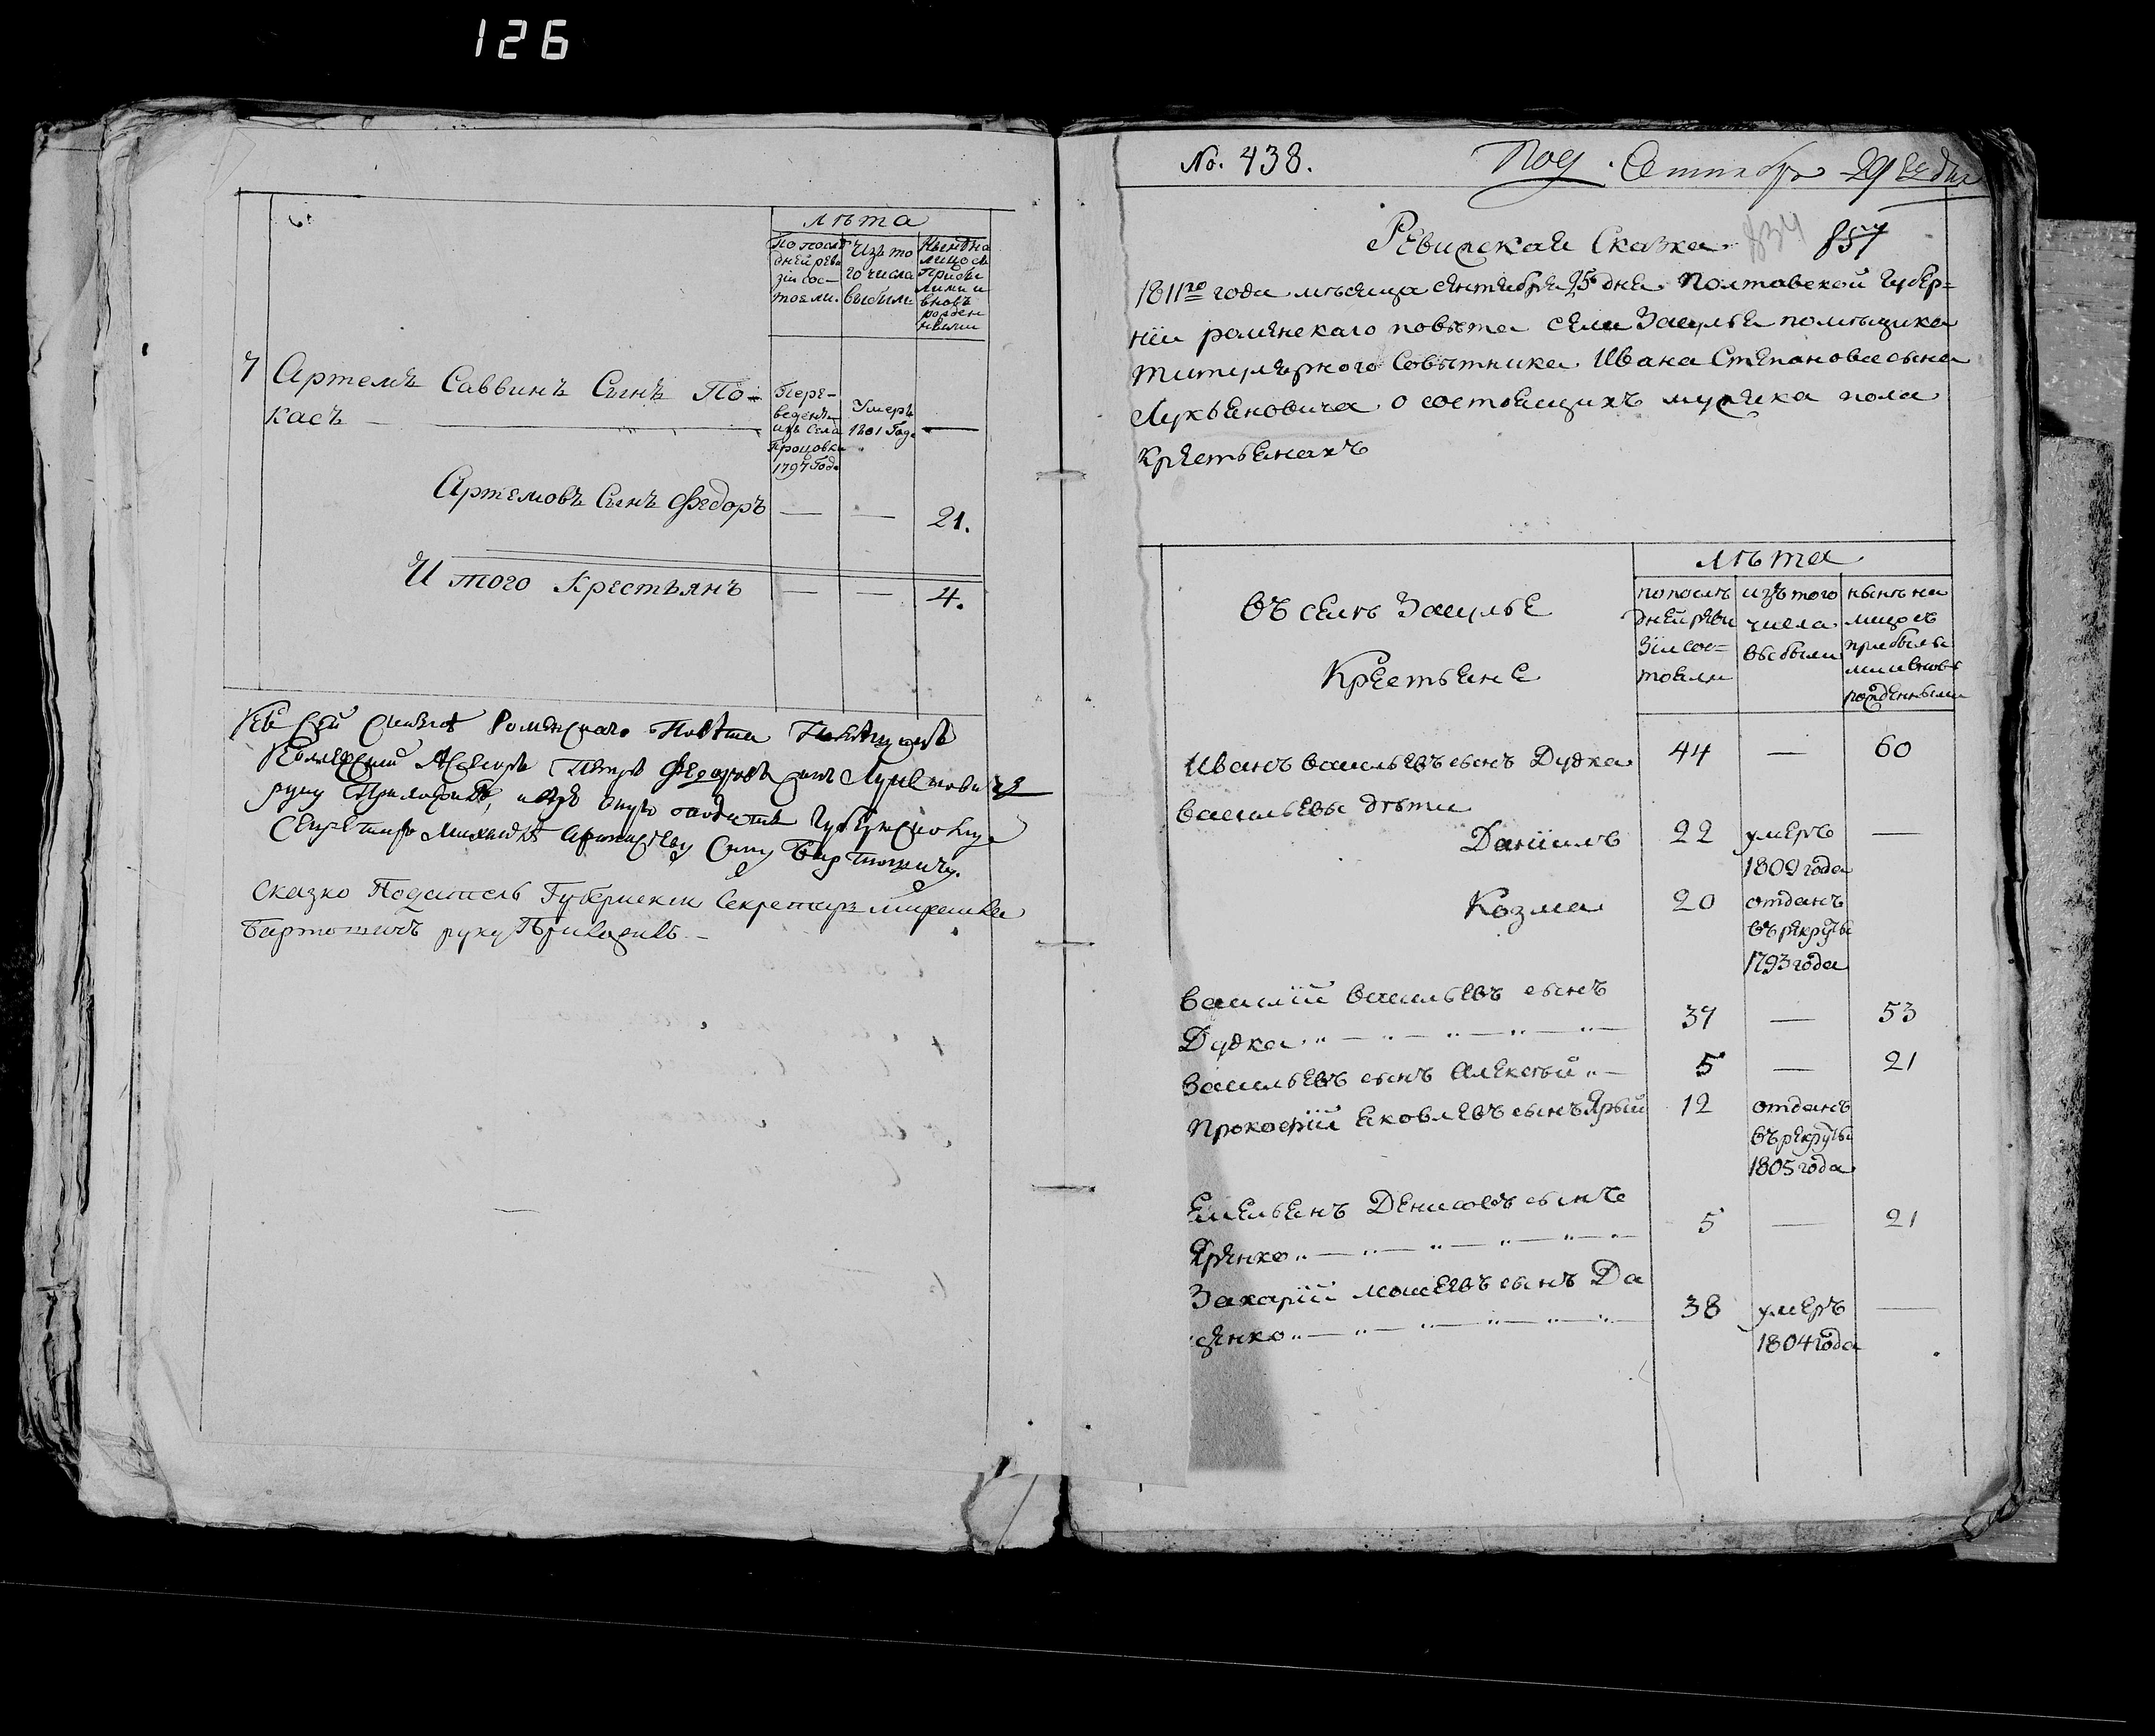 126
лѣта
По послѣ
дней реви
зіи сос-
тояли.
Изъ то
го числа
выбыли
Нынѣ на
лицо съ
прибы
лыми и
вновь
рожден
ными
7
Артемъ Саввинъ Сынъ По-
касъ
Пере-
веденъ
изъ села
1797 Года
Умеръ
1801 Года
—
Артемовъ Сынъ Федоръ — — 21.
И того Крестьянъ — — 4.
Къ Сей Сказкѣ Роменского Повѣта
Колежский Асесоръ Петръ Федоровъ сынъ
руку Приложилъ,
Сказко Податель Губернски Секретарь
Бартошевичъ руку Приложилъ
No. 438.
Под. Сентября 29 дня
834
Ревизская Сказка.
1811го года мѣсяца сентября 25 дня Полтавской Губер=
ніи роменскаго повѣта села Засулья помѣщика
титулярного Совѣтника Ивана Степанова сына
Лукьяновича о состоящихъ мужска пола
крестьянахъ
въ селѣ Засулье
Крестьяне
лѣта
по послѣ
дней реви
зіи сос=
тояли
изъ того
числа
выбыли
нынѣ на
лицо съ
прибылы
ми и вновь
рожденными
Иванъ васильевъ сынъ Дудка 44 — 60
васильевы дѣти
Даніилъ 22 умеръ —
1809 года
Козма 20 отданъ
въ рекруты
1793 года
василій васильевъ сынъ
Дудка 37 — 53
васильевъ сынъ алексѣй 5 — 21
Прокофій яковлевъ сынъ Ярый 12 отданъ
въ рекруты
1805 года
емельянъ Денисовъ сынъ
Яренко 5 — 21
Захарій моисѣевъ сынъ Да
ценко 38 умеръ —
1804 года